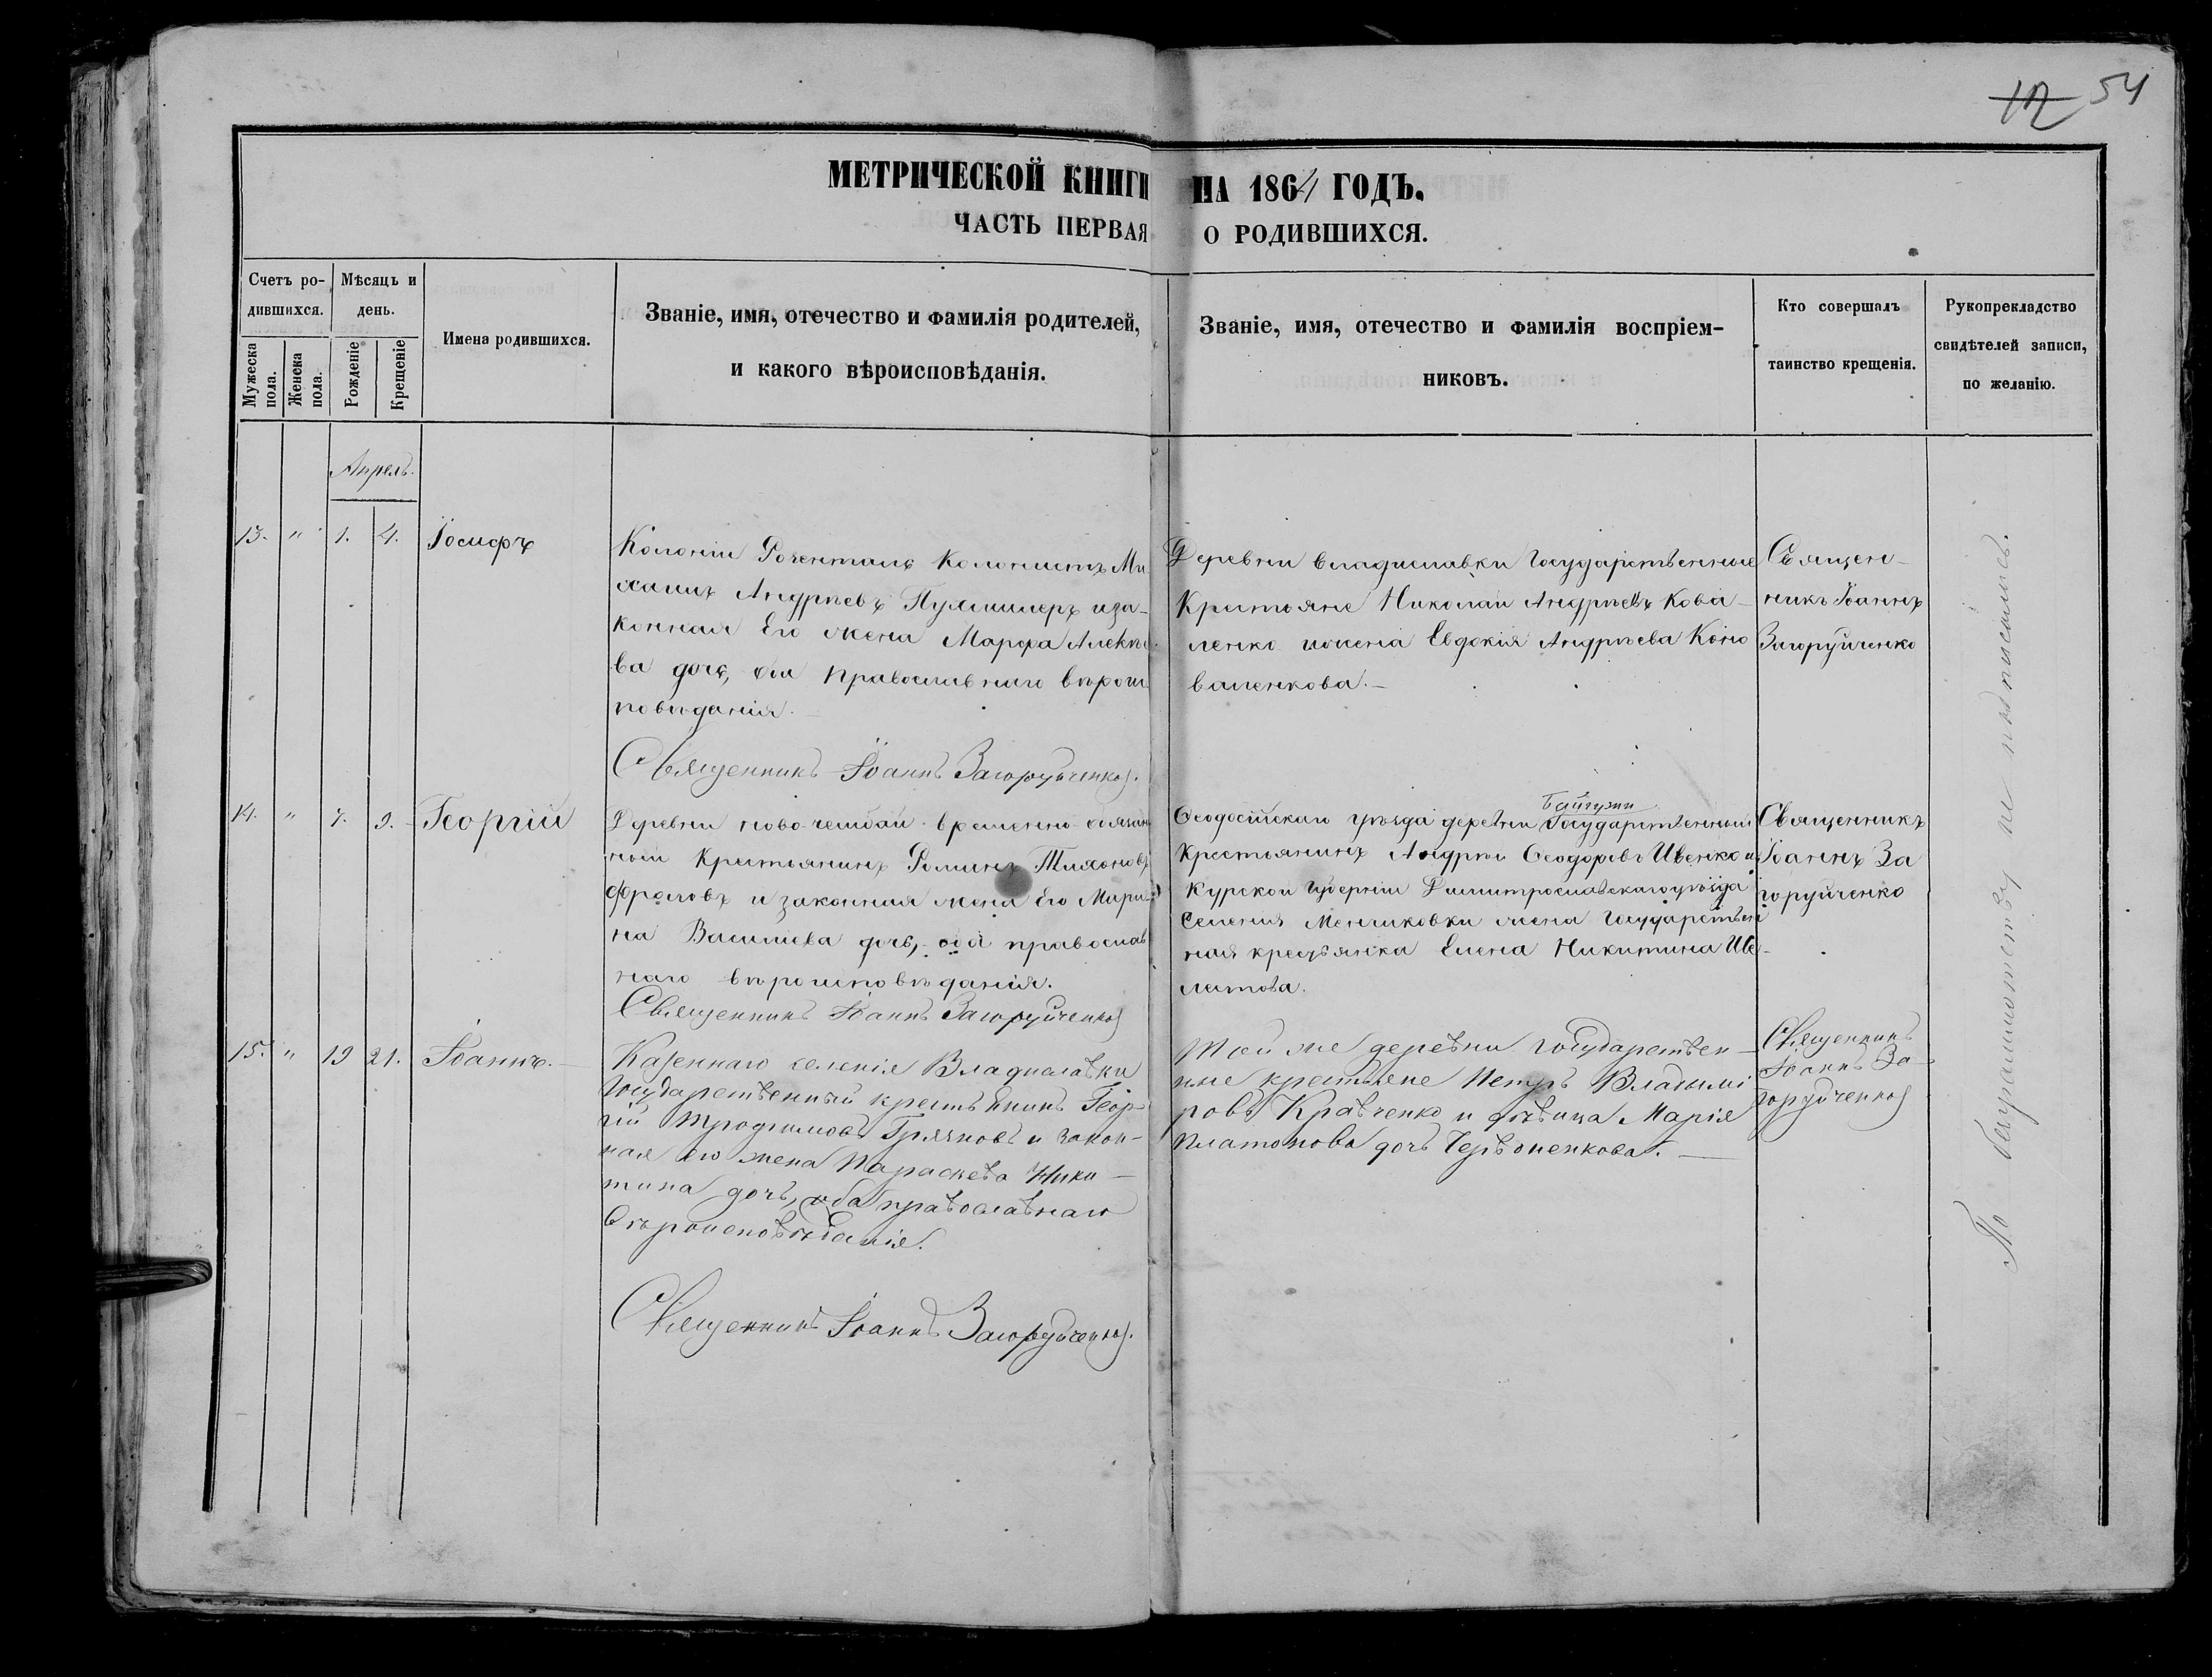 54
МЕТРИЧЕСКОЙ КНИГИ НА 1864 ГОДЪ.
ЧАСТЬ ПЕРВАЯ О РОДИВШИХСЯ.
Счетъ ро-
дившихся.
Мужеска
пола.
Женска
пола.
Мѣсяцъ и
день.
Рожденіе
Крещеніе
Имена родившихся.
Званіе, имя, отечество и фамилія родителей,
и какого вѣроисповѣданія.
Званіе, имя, отечество и фамилія воспріем-
никовъ.
Кто совершалъ
таинство крещенія.
Рукоприкладство
свидѣтелей записи,
по желанію.
Апрель.
13. " 1. 4. Іосифъ
Колоніи Розенталь Колонистъ Ми
хаилъ Андреевъ и за-
конная Его жена Марфа
ва дочь, оба православнаго вѣроис
повѣданія.
Священникъ Іоаннъ Загоруйченко.
Деревни Владиславки Государственные
Крестьяне Николай Андреевъ Кова-
ленко и жена Евдокія Андреева Коно
валенкова.—
Священ-
никъ Іоаннъ
Загоруйченко
14. " 7. 9. Георгій
Деревни временно обязан
ный Крестьянинъ Фоминъ Тихоновъ
Фроловъ и законная жена Его Мари-
на Васильева дочь, оба православ
наго вѣроисповѣданія.
Священникъ Іоаннъ Загоруйченко
Байгужи
Ѳеодосійскаго уѣзда деревни Государственный
Крестьянинъ Андрей Ѳеодоровъ Ивенко и
Курской Губерніи Димитрославскаго уѣзда
Селенія Менчиковки жена Государствен
ная крестьянка Елена Никитина
Священникъ
Іоаннъ За
горуйченко
15. " 19 21. Іоаннъ.—
Казеннаго селенія Владиславки
Государственный крестьянинъ Геор-
гій Трофимовъ Грязновъ и закон-
ная его жена Параскева Ники-
тина дочь, оба православнаго
Вѣроисповѣданія.
Священникъ Іоаннъ Загоруйченко.
Той же деревни государствен-
ные крестьяне Петръ Владимі
ровъ Кравченко и дѣвица Марія
Платонова дочь Червоненкова.—
Священникъ
Іоаннъ За-
горуйченко
По безграмотству не подписались.